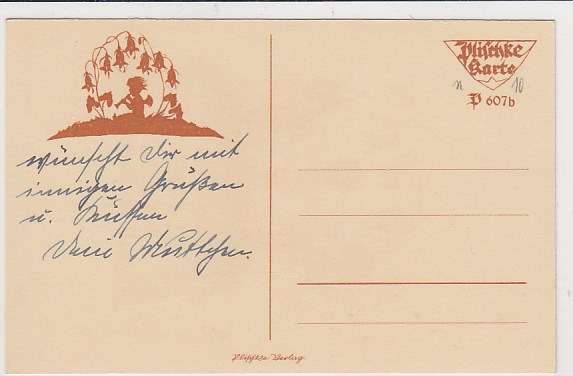 wünscht Dir mit
innigen Grüßen
u. Küssen
Dein Muttchen.
Plischke
Karte
n 10
P 607b
Plischke-Verlag.